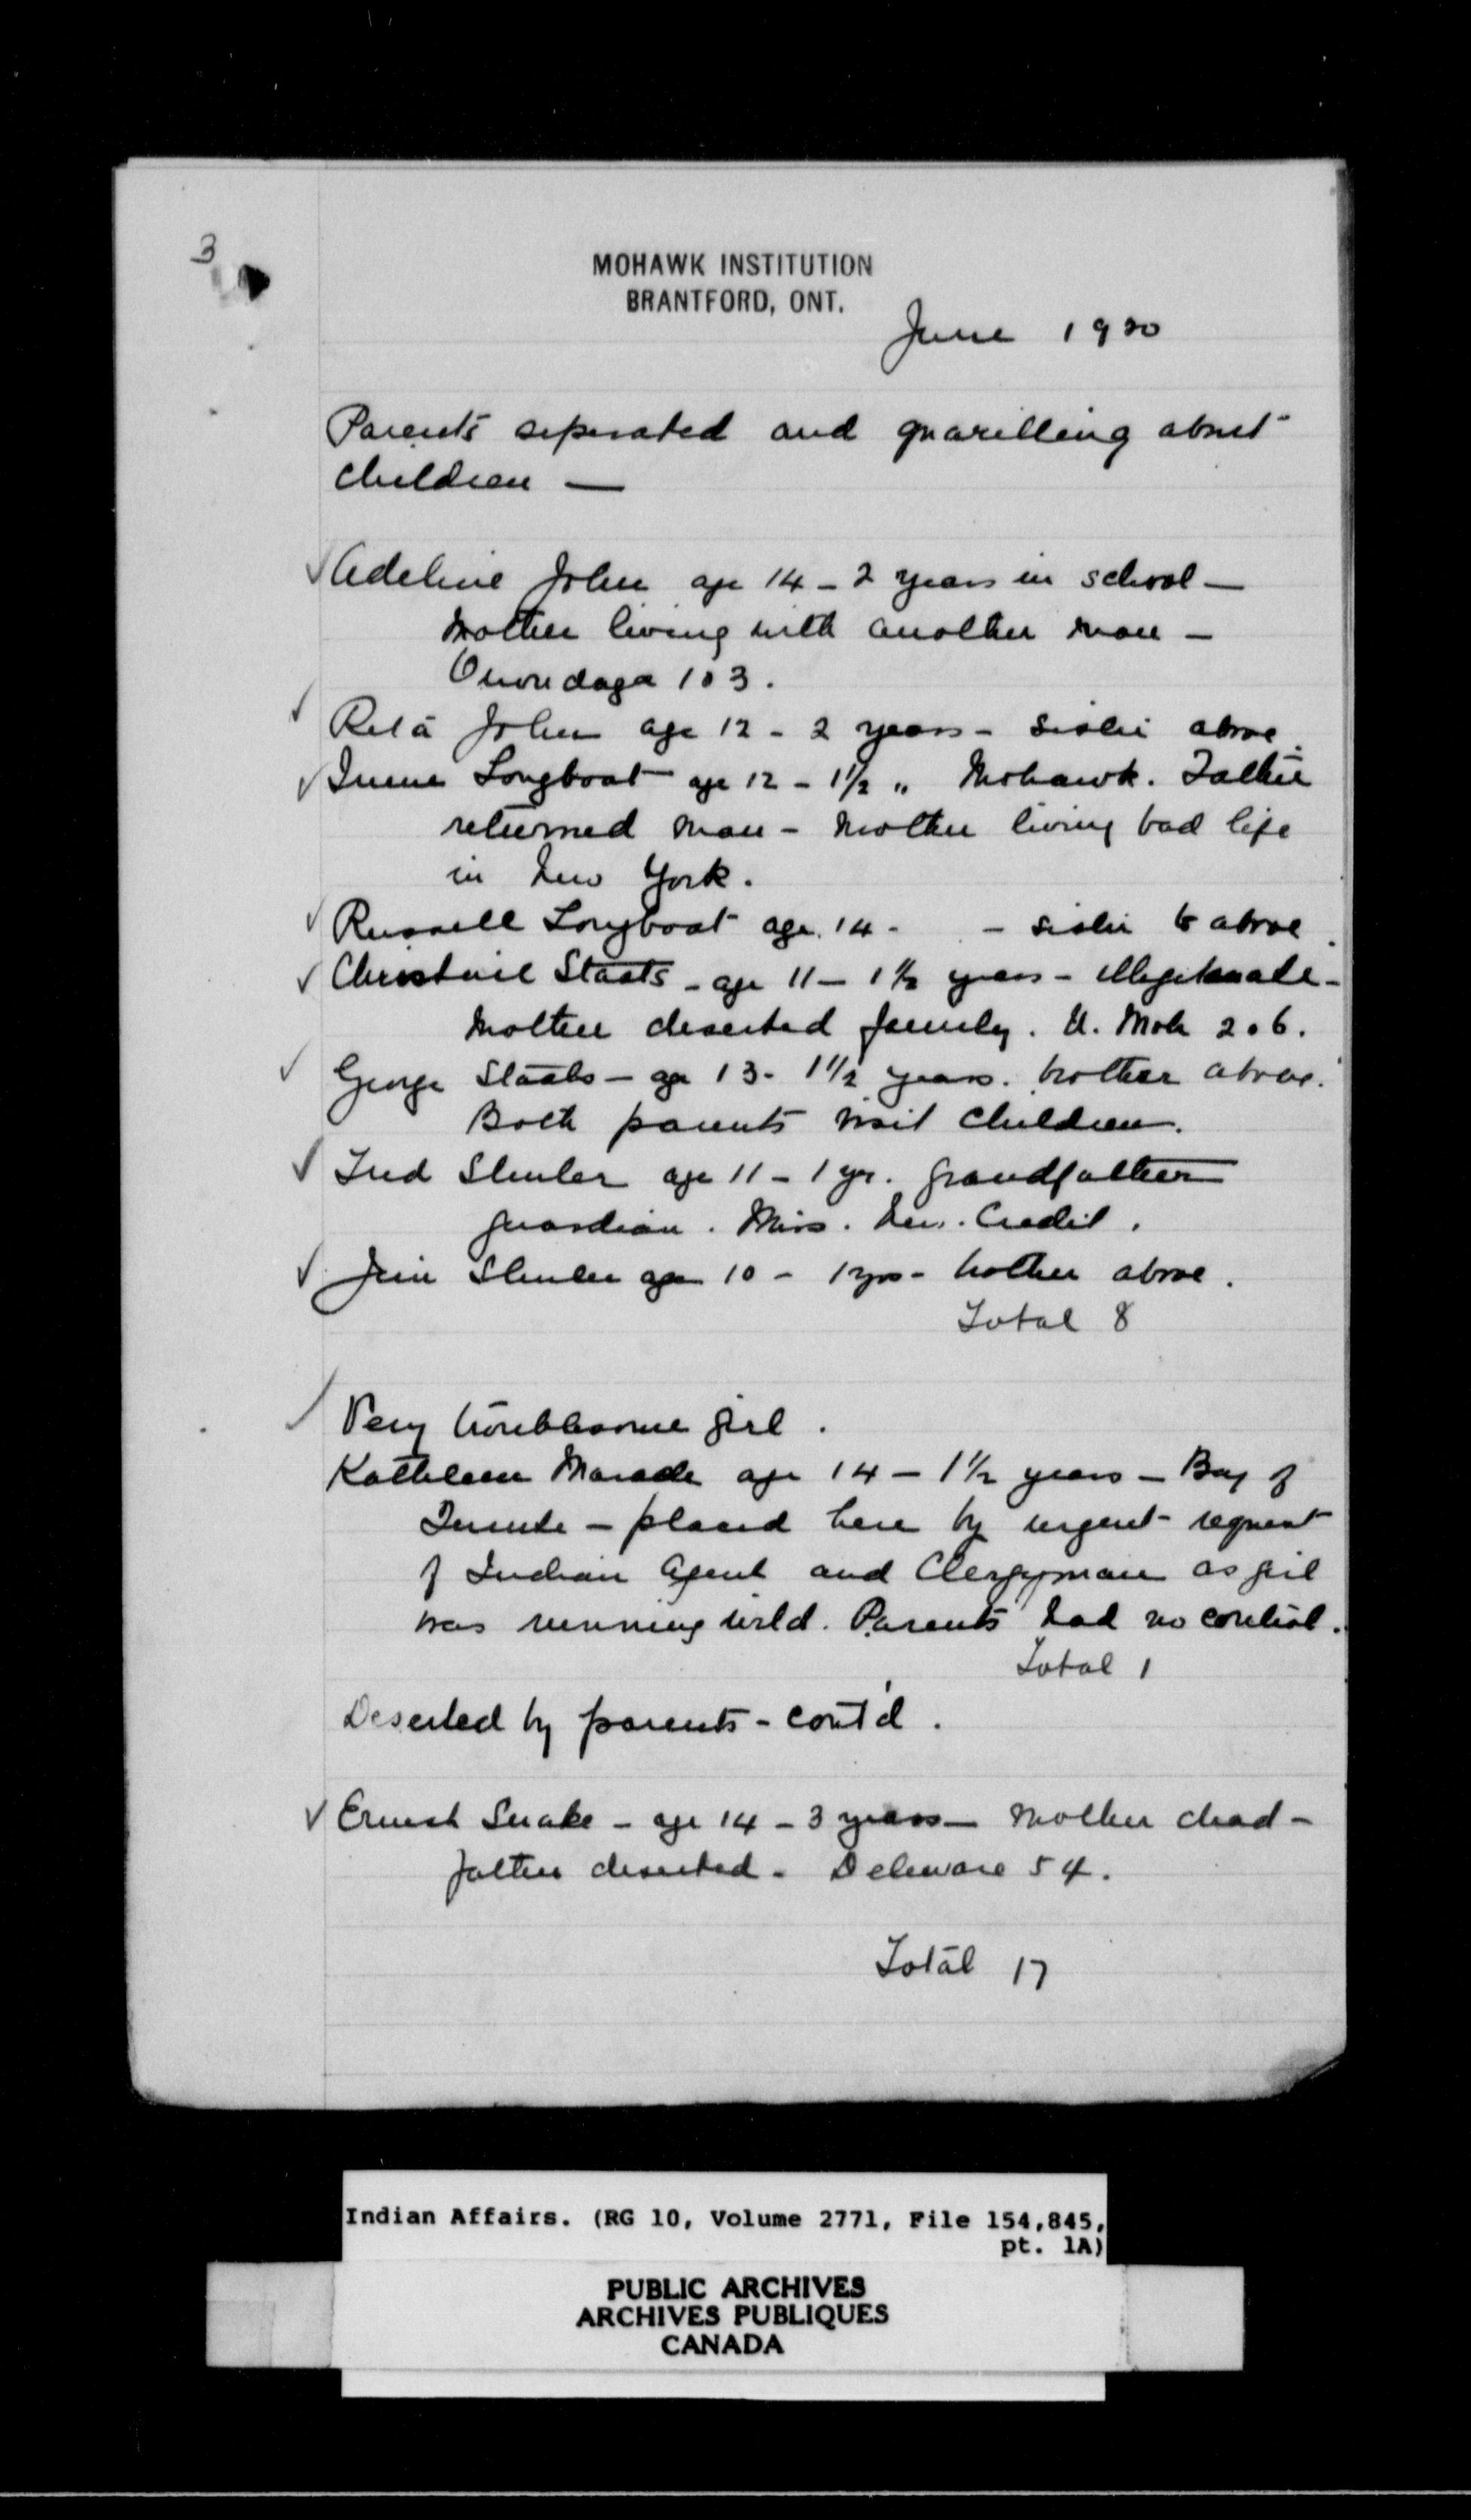 3
MOHAWK INSTITUTION
BRANTFORD, ONT.
June 1920
Parents seperated and quarilling about
children —
Adeline John age 14 - 2 years in school —
Mother living with another man —
Onondaga 103.
Reta John age 12 - 2 years - sister above
Longboat age 12 - 1 1/2 " Mohawk. Father
returned man - Mother living bad life
in New York.
Russell Longboat age 14 - - sister to above
Staats - age 11 - 1 1/2 years - illegitimate -
Mother deserted family. U. Moh 206.
George Staats - age 13 - 1 1/2 years. brother above.
Both parents visit children.
age 11 - 1 yr. grandfather
guardian. Miss. New. Credit.
Jim age 10 - 1 yrs - brother above.
Total 8
Very troublesome girl.
Kathleen Maracle age 14 - 1 1/2 years - Bay of
Quinte - placed here by urgent request
of Indian Agent and Clergyman as girl
was running wild. Parents had no control.
Total 1
Deserted by parents - cont'd.
Ernest Snake - age 14 - 3 years - Mother dead -
father deserted - Deleware 54.
Total 17
Indian Affairs. (RG 10, Volume 2771, File 154,845,
pt. 1A)
PUBLIC ARCHIVES
ARCHIVES PUBLIQUES
CANADA